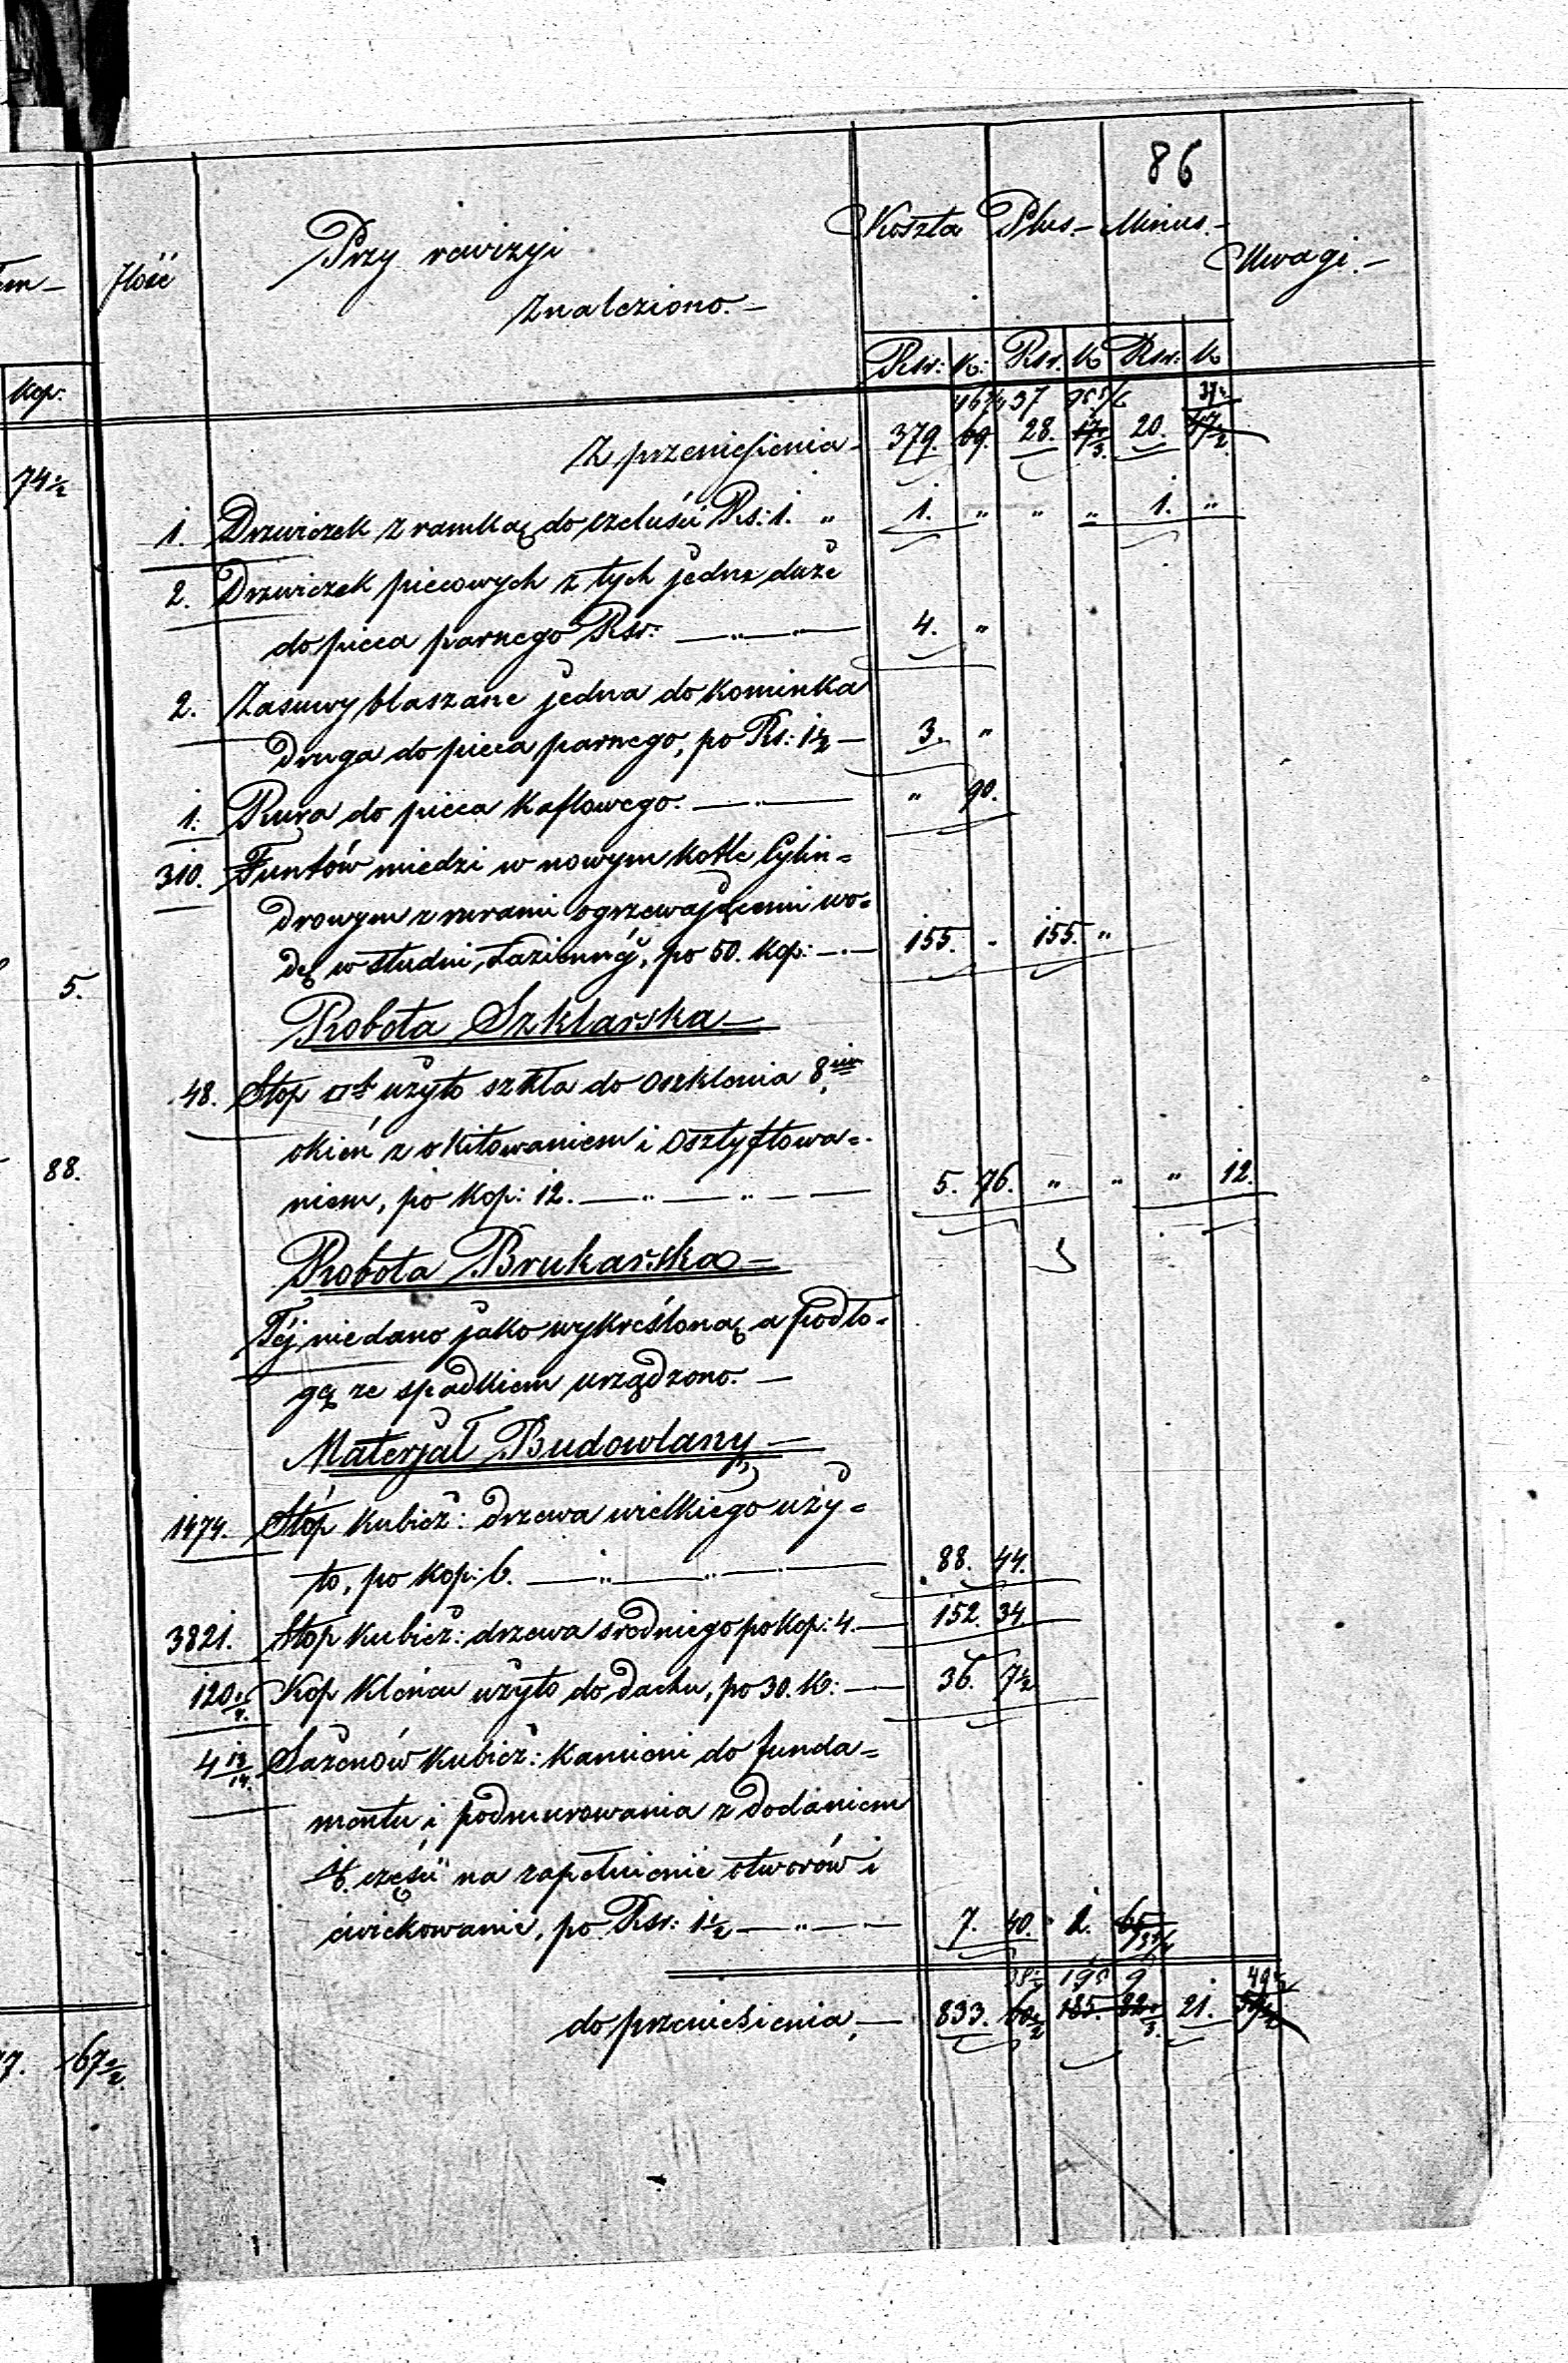 86
Ilość Przy rewizyi Koszta Plus.— Minus.—
Znaleziono.— Uwagi.—
Kop: Rsr: K: Rsr. K Rsr: K
37
Z przeniesienia— 379. 69. 28. 20.
74½
1. Drzwiczek z ramką do czeluści Rs: 1. " 1. " " " 1. "
2. Drzwiczek piecowych z tych jedne duże
do pieca parnego Rsr: —"—"— 4. "
2. Zasuwy blaszane jedna do kominka
druga do pieca parnego, po Rs: 1½— 3. "
1. Rura do pieca kaflowego.—.— " 90.
310. Funtów miedzi w nowym kotle Cylin=
drowym z rurami ogrzewającemi wo=
dę w studni, Łaziennéj, po 50. kop:—.— 155. " 155. "
5.
Robota Szklarska—
48. Stop użyto szkła do oszklenia 8
okien z okitowaniem i osztyftowa=
88.
niem, po kop: 12.—"—"—— 5. 76. " " " 12.
Robota Brukarska—
Téj niedano jako wykreśloną a podło=
gę ze spadkiem urządzono.—
Materjał Budowlany—
1474. Stóp kubicz: drzewa wielkiego uży=
to, po kop: 6.—"—"—.— 88. 44.
3821. Stop kubicz: drzewa średniego po kop: 4.— 152. 34.
120¼. Kop Klońcu użyto do dachu, po 30. K:—— 36. 7½
4 13/14. Sażenów kubicz: kamieni do funda=
mentu i podmurowania z dodaniem
części na zapełnienie otworów i
ćwiekowanie, po Rsr: 1½—"—— 7. 40. 2. 65
195 9 49½
do przeniesienia,— 833. 60½ 185. 21.
7. 67½.